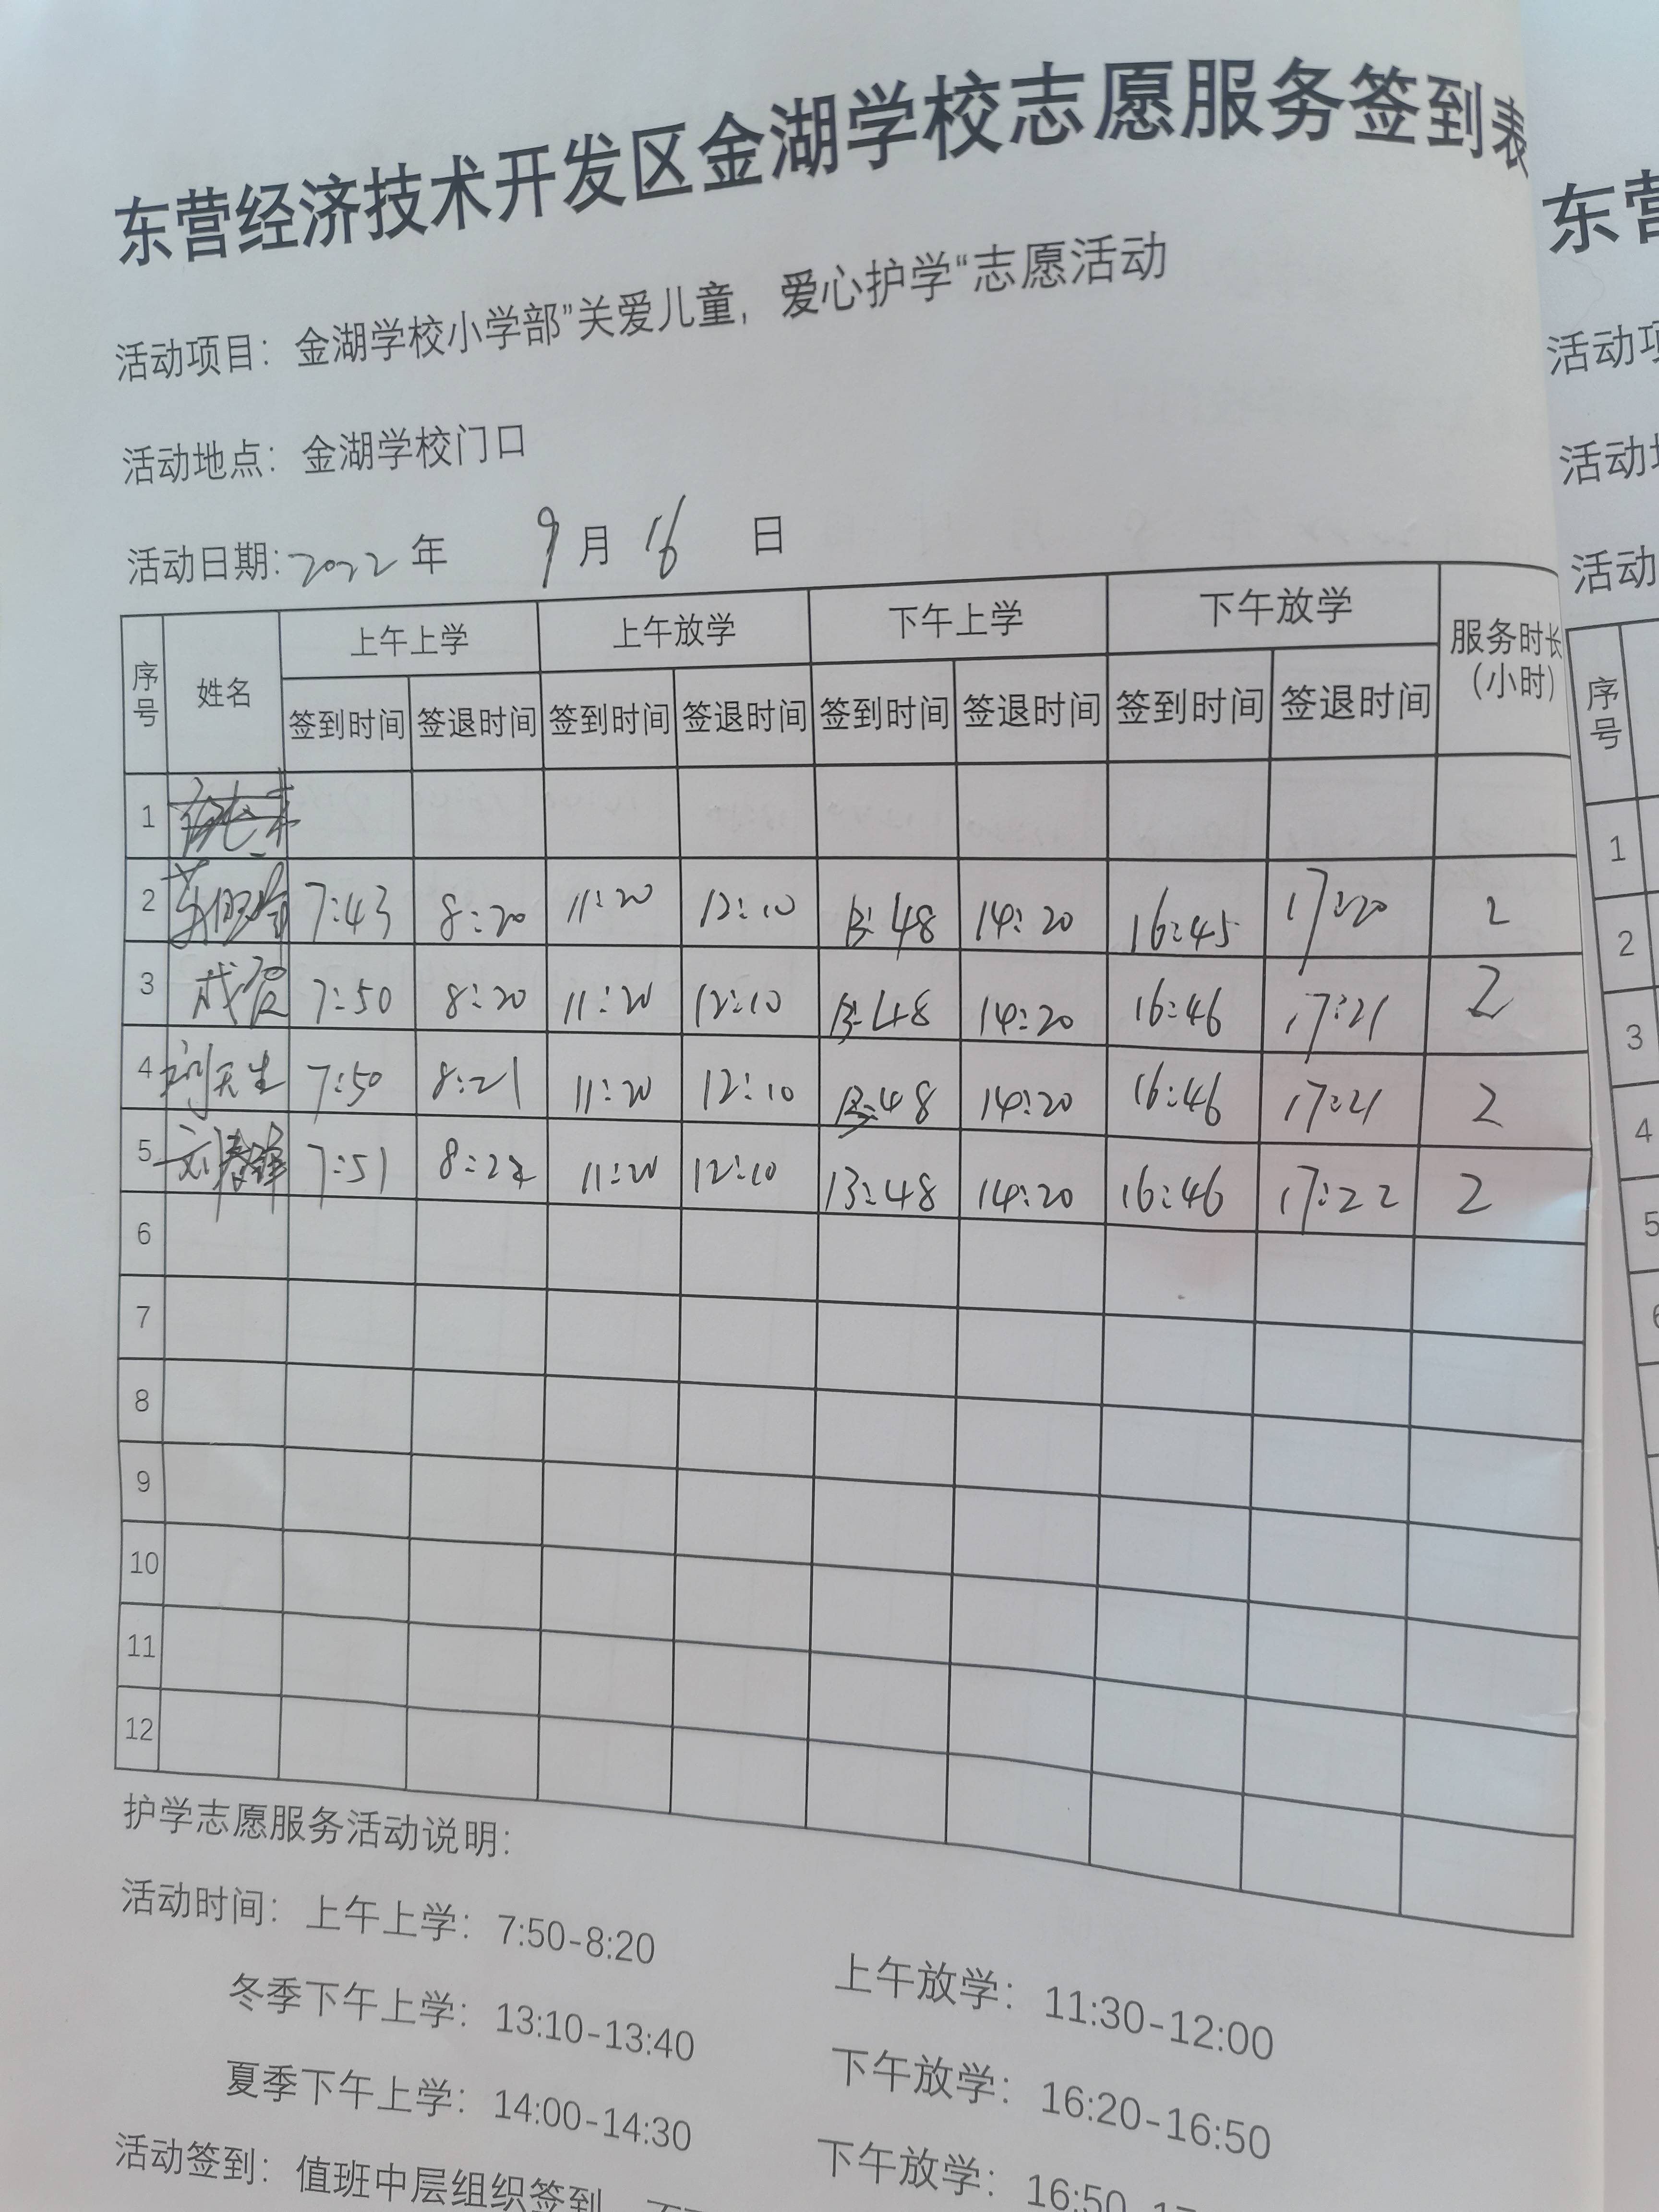 东营经济技术开发区金湖学校志愿服务签到表
活动项目：金湖学校小学部”关爱儿童，爱心护学“志愿活动
活动地点：金湖学校门口
活动日期：2022 年 9 月 16 日
序号 姓名 上午上学 上午放学 下午上学 下午放学 服务时长（小时）
签到时间 签退时间 签到时间 签退时间 签到时间 签退时间 签到时间 签退时间
1
2 7:43 8:20 11:20 12:10 13:48 14:20 16:45 17:20 2
3 7:50 8:20 11:20 12:10 13:48 14:20 16:46 17:21 2
4 7:50 8:21 11:20 12:10 13:48 14:20 16:46 17:21 2
5 7:51 8:22 11:20 12:10 13:48 14:20 16:46 17:22 2
6
7
8
9
10
11
12
护学志愿服务活动说明：
活动时间：上午上学：7:50-8:20 上午放学：11:30-12:00
冬季下午上学：13:10-13:40 下午放学：16:20-16:50
夏季下午上学：14:00-14:30 下午放学：16:50
活动签到：值班中层组织签到
东营
活动项
活动
活动
序号
1
2
3
4
5
6